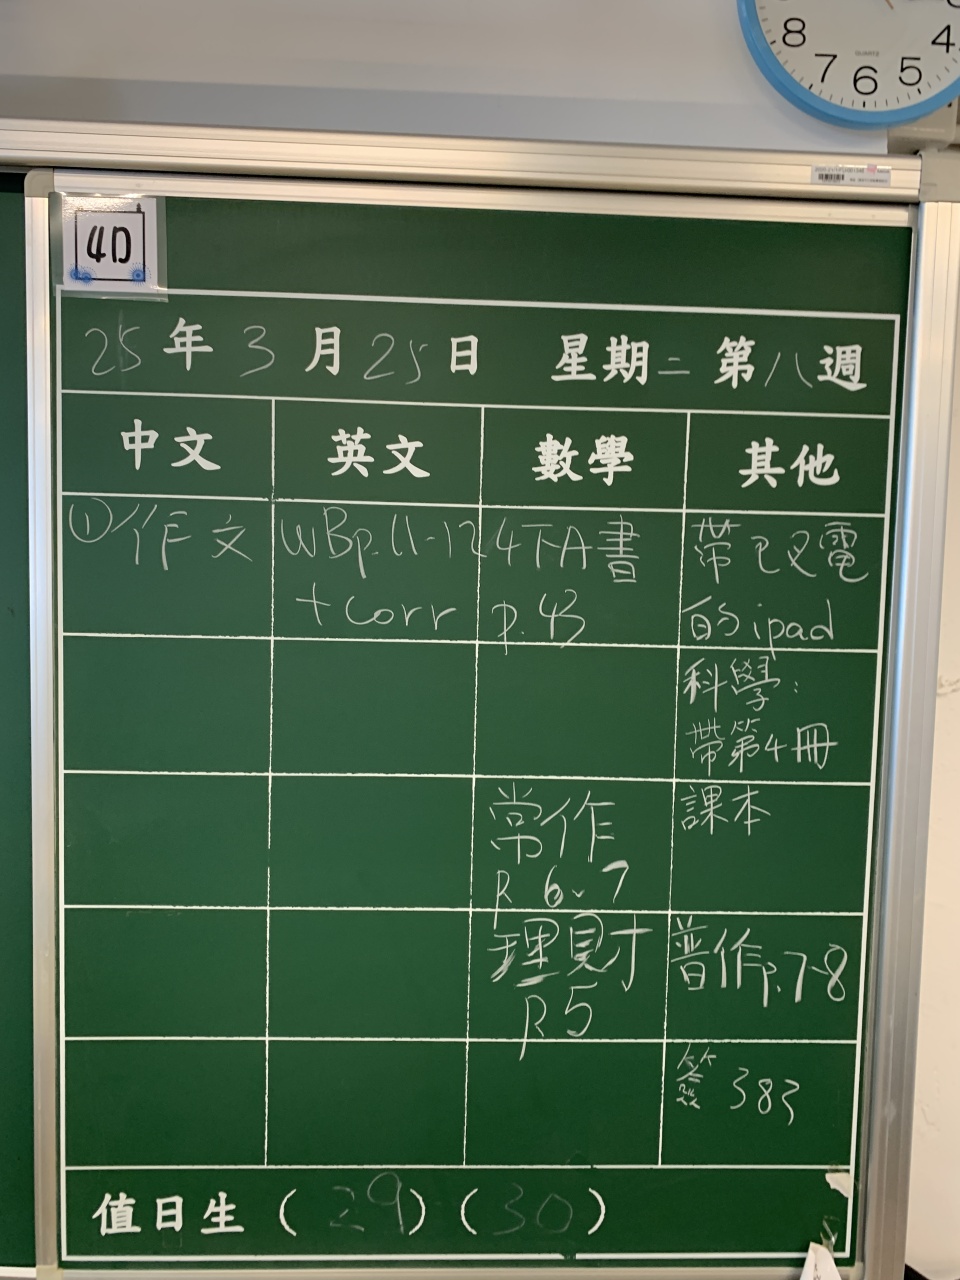 8 7 6 5 4
QUARTZ
4D
25年3月25日 星期二 第八週
中文 英文 數學 其他
①作文
WBp.11-12
+corr
4下A書
p.43
帶已叉電
的ipad
科學:
帶第4冊
課本
常作
P.6、7
理財
P.5
普作p.7-8
簽383
值日生(29)(30)